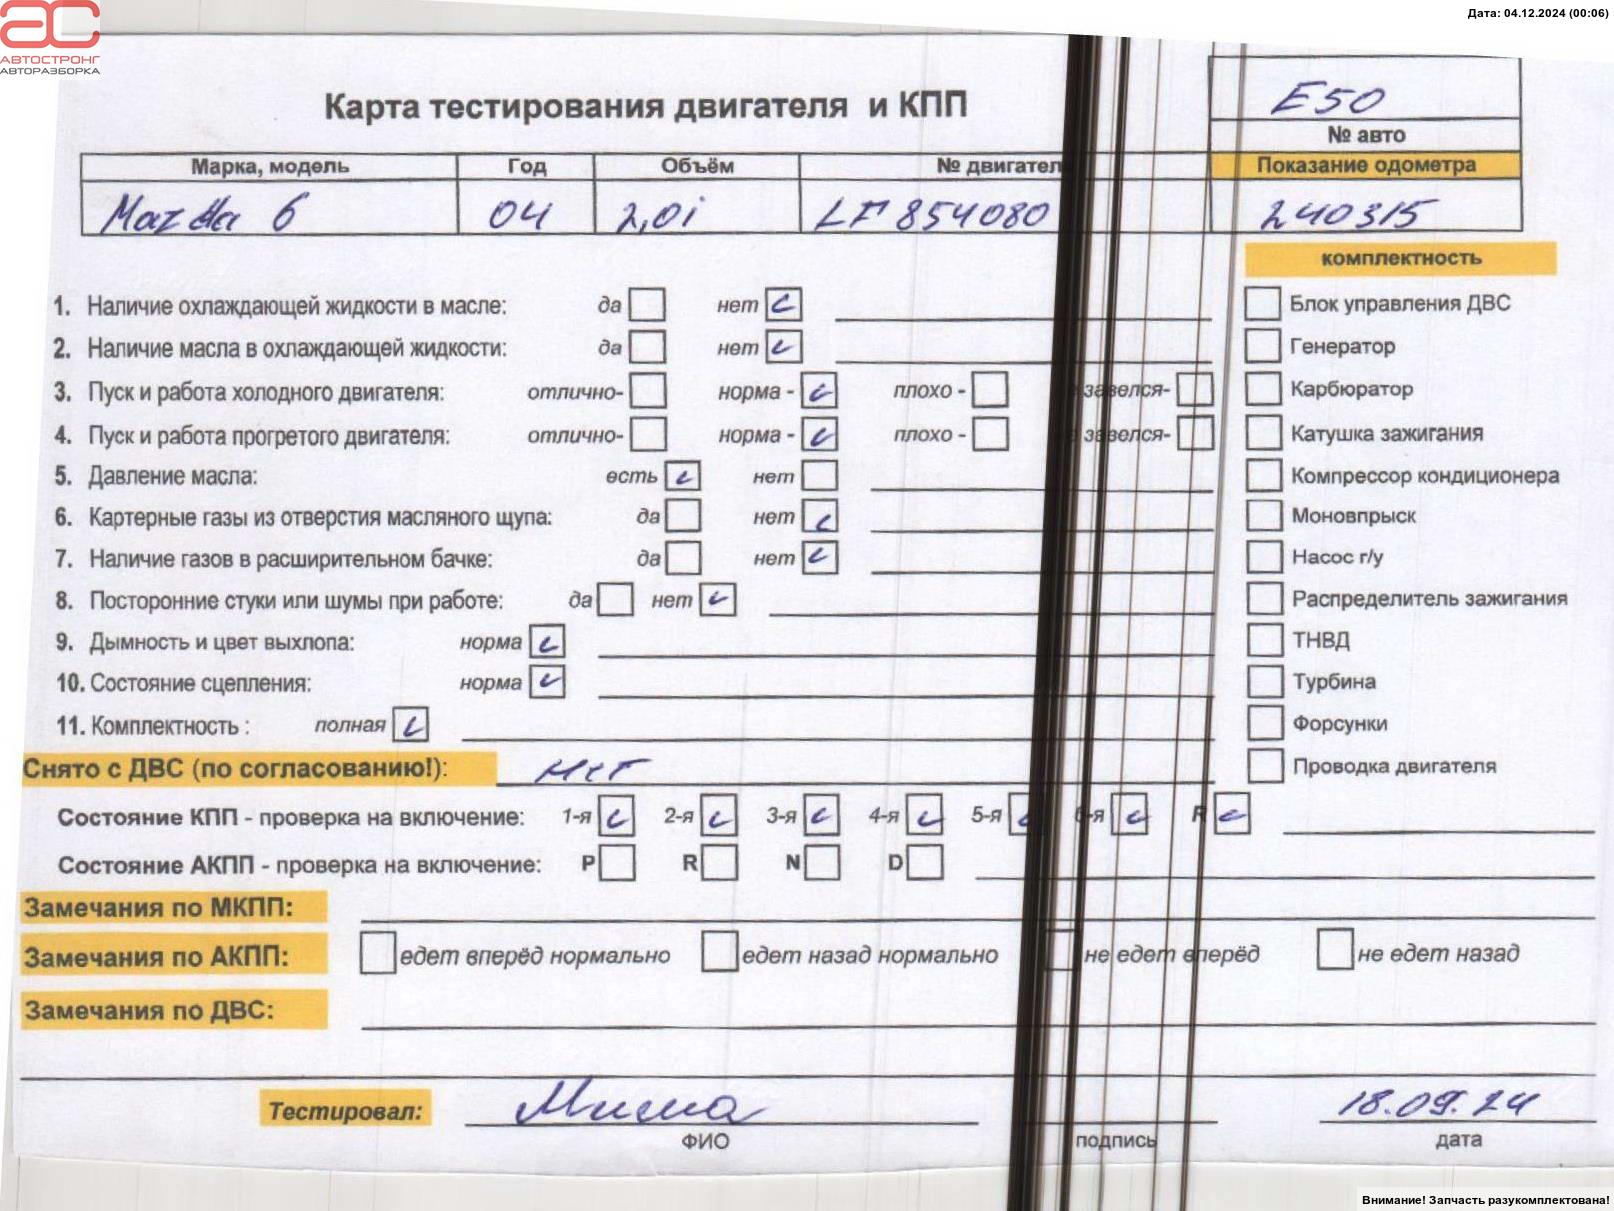 Дата: 04.12.2024 (00:06)
АС
АВТОСТРОНГ
АВТОРАЗБОРКА
Карта тестирования двигателя и КПП
E50
№ авто
Марка, модель Год Объём № двигател Показание одометра
Mazda 6 04 2,0i LF 854080 240315
комплектность
1. Наличие охлаждающей жидкости в масле: да нет Блок управления ДВС
2. Наличие масла в охлаждающей жидкости: да нет Генератор
3. Пуск и работа холодного двигателя: отлично- норма - плохо - завелся- Карбюратор
4. Пуск и работа прогретого двигателя: отлично- норма - плохо - завелся- Катушка зажигания
5. Давление масла: есть нет Компрессор кондиционера
6. Картерные газы из отверстия масляного щупа: да нет Моновпрыск
7. Наличие газов в расширительном бачке: да нет Насос г/у
8. Посторонние стуки или шумы при работе: да нет Распределитель зажигания
9. Дымность и цвет выхлопа: норма ТНВД
10. Состояние сцепления: норма Турбина
11. Комплектность : полная Форсунки
Снято с ДВС (по согласованию!): нет Проводка двигателя
Состояние КПП - проверка на включение: 1-я 2-я 3-я 4-я 5-я 6-я R
Состояние АКПП - проверка на включение: P R N D
Замечания по МКПП:
Замечания по АКПП: едет вперёд нормально едет назад нормально не едет вперёд не едет назад
Замечания по ДВС:
Тестировал: Миша 18.09.24
ФИО подпись дата
Внимание! Запчасть разукомплектована!